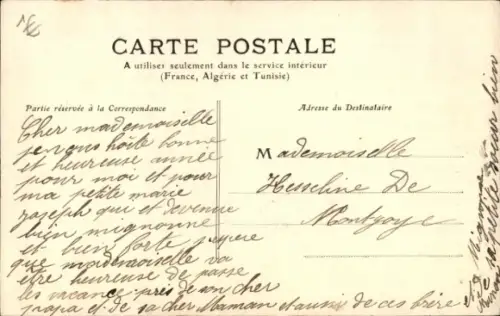 CARTE POSTALE
A utiliser seulement dans le service intérieur
(France, Algérie et Tunisie)
Partie réservée à la Correspondance
Adresse du Destinataire
Cher mademoiselle
je vous hoite bonne
et heureuse année
pour moi et pour
ma petite marie
joseph qui et devenue
bien mignonne
et bien forte jespere
que mademoiselle va
être heureuse de passe
les vacance près de son cher
papa et de sa cher Maman et aussi de ces frère
Mademoiselle
Hesseline De
Montjoye
et Mignonne